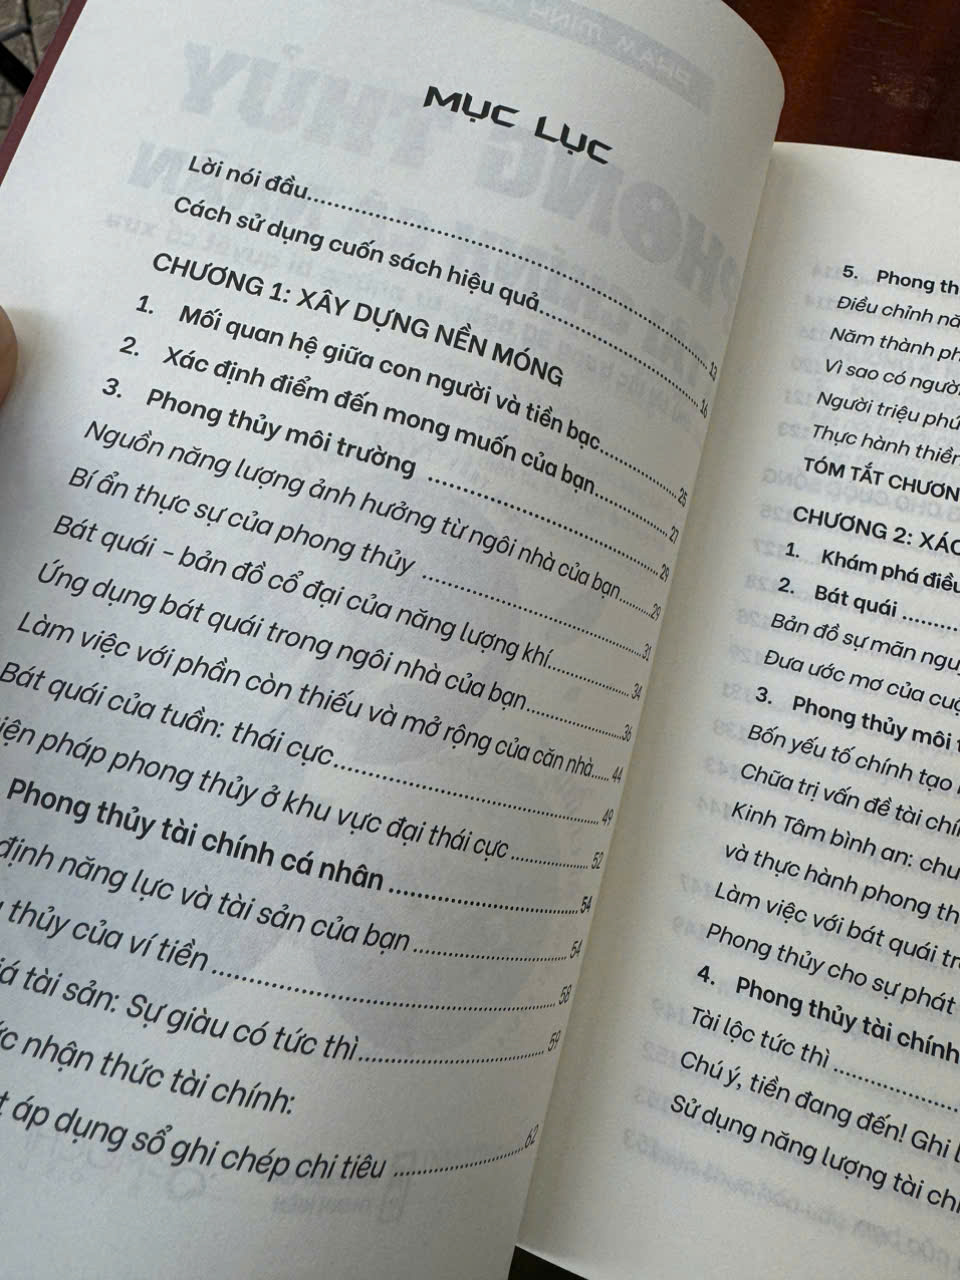 MỤC LỤC
Lời nói đầu.......... 13
Cách sử dụng cuốn sách hiệu quả.......... 16
CHƯƠNG 1: XÂY DỰNG NỀN MÓNG
1. Mối quan hệ giữa con người và tiền bạc.......... 25
2. Xác định điểm đến mong muốn của bạn.......... 27
3. Phong thủy môi trường .......... 29
Nguồn năng lượng ảnh hưởng từ ngôi nhà của bạn.......... 29
Bí ẩn thực sự của phong thủy .......... 31
Bát quái - bản đồ cổ đại của năng lượng khí.......... 34
Ứng dụng bát quái trong ngôi nhà của bạn.......... 36
Làm việc với phần còn thiếu và mở rộng của căn nhà...... 44
Bát quái của tuần: thái cực.......... 49
iện pháp phong thủy ở khu vực đại thái cực .......... 52
Phong thủy tài chính cá nhân .......... 54
định năng lực và tài sản của bạn .......... 54
thủy của ví tiền .......... 58
iá tài sản: Sự giàu có tức thì.......... 59
nhận thức tài chính:
áp dụng sổ ghi chép chi tiêu .......... 62
5. Phong th
Điều chỉnh nă
Năm thành ph
Vì sao có ngườ
Người triệu phú
Thực hành thiền
TÓM TẮT CHƯƠN
CHƯƠNG 2: XÁC
1. Khám phá điều
2. Bát quái ..........
Bản đồ sự mãn ngu
Đưa ước mơ của cuộ
3. Phong thủy môi t
Bốn yếu tố chính tạo
Chữa trị vấn đề tài chí
Kinh Tâm bình an: chu
và thực hành phong th
Làm việc với bát quái tr
Phong thủy cho sự phát
4. Phong thủy tài chính
Tài lộc tức thì ..........
Chú ý, tiền đang đến! Ghi l
Sử dụng năng lượng tài chí